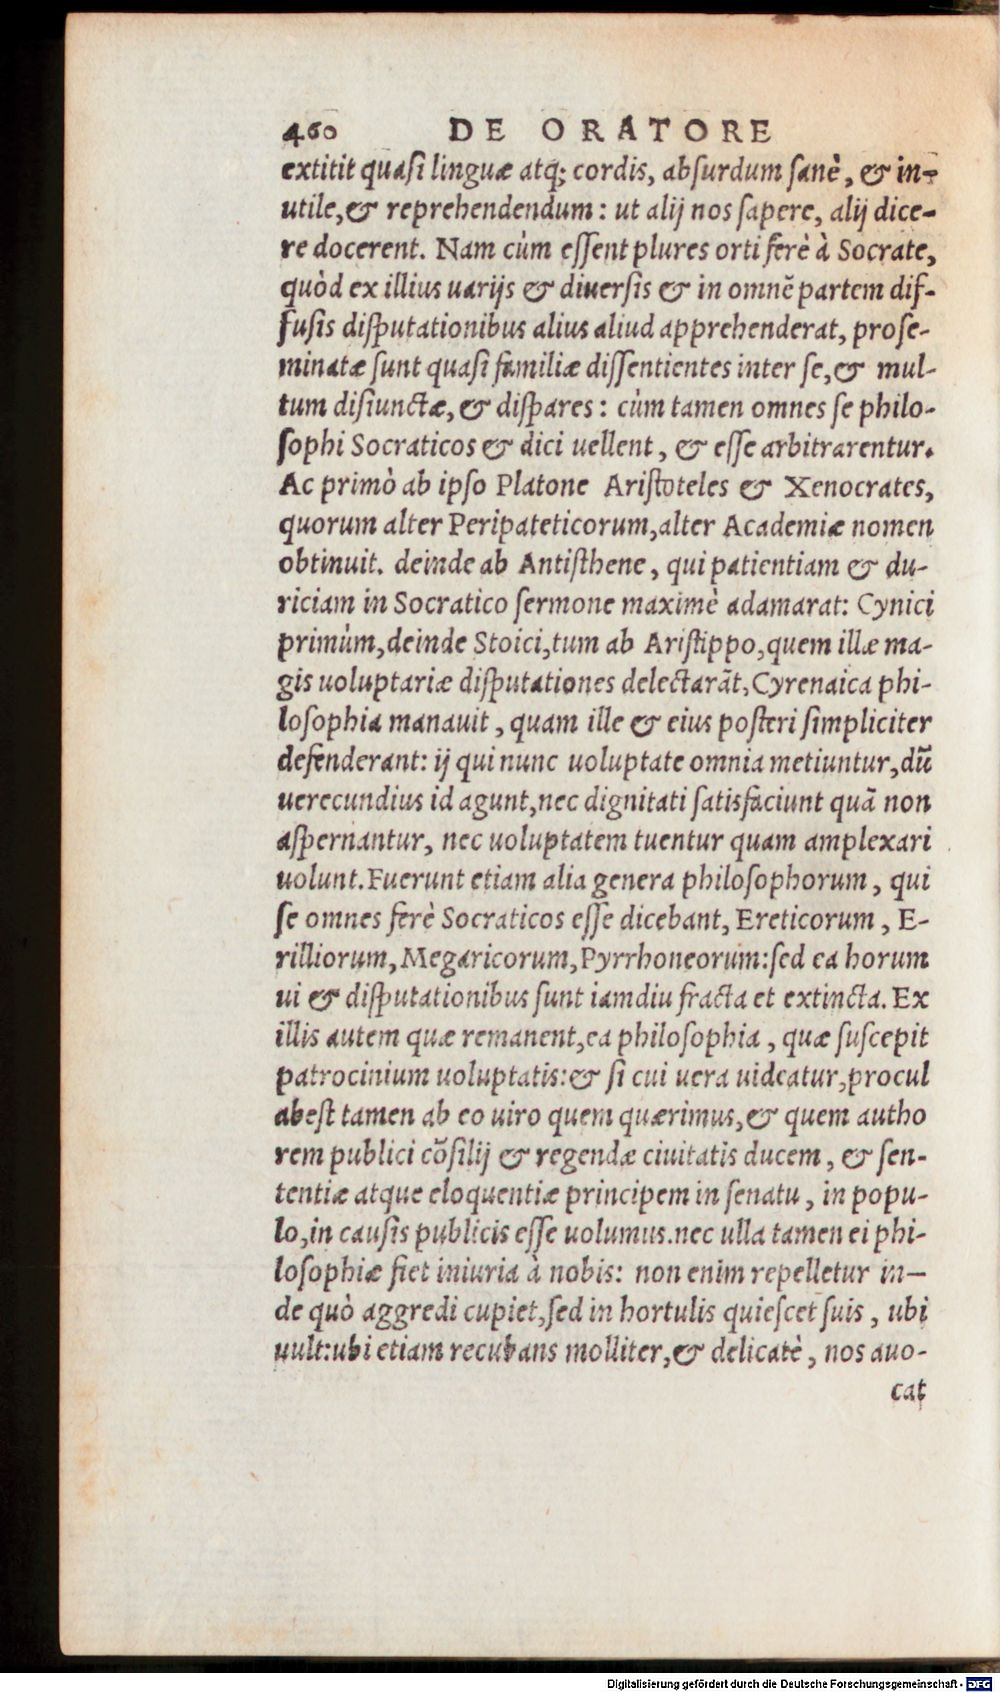 460 DE ORATORE
extitit quasi linguæ atq; cordis, absurdum sanè, & in-
utile, & reprehendendum: ut alij nos sapere, alij dice-
re docerent. Nam cùm essent plures orti ferè à Socrate,
quòd ex illius uarijs & diuersis & in omnē partem dif-
fusis disputationibus alius aliud apprehenderat, prose-
minatæ sunt quasi familiæ dissentientes inter se, & mul-
tum disiunctæ, & dispares: cùm tamen omnes se philo-
sophi Socraticos & dici uellent, & esse arbitrarentur.
Ac primò ab ipso Platone Aristoteles & Xenocrates,
quorum alter Peripateticorum, alter Academiæ nomen
obtinuit. deinde ab Antisthene, qui patientiam & du-
riciam in Socratico sermone maximè adamarat: Cynici
primùm, deinde Stoici, tum ab Aristippo, quem illæ ma-
gis uoluptariæ disputationes delectarāt, Cyrenaica phi-
losophia manauit, quam ille & eius posteri simpliciter
defenderant: ij qui nunc uoluptate omnia metiuntur, dū
uerecundius id agunt, nec dignitati satisfaciunt quā non
aspernantur, nec uoluptatem tuentur quam amplexari
uolunt. Fuerunt etiam alia genera philosophorum, qui
se omnes ferè Socraticos esse dicebant, Ereticorum, E-
rilliorum, Megaricorum, Pyrrhoneorum: sed ea horum
ui & disputationibus sunt iamdiu fracta et extincta. Ex
illis autem quæ remanent, ea philosophia, quæ suscepit
patrocinium uoluptatis: & si cui uera uideatur, procul
abest tamen ab eo uiro quem quærimus, & quem autho
rem publici cōsilij & regendæ ciuitatis ducem, & sen-
tentiæ atque eloquentiæ principem in senatu, in popu-
lo, in causis publicis esse uolumus. nec ulla tamen ei phi-
losophiæ fiet iniuria à nobis: non enim repelletur in-
de quò aggredi cupiet, sed in hortulis quiescet suis, ubi
uult: ubi etiam recubans molliter, & delicatè, nos auo-
cat
Digitalisierung gefördert durch die Deutsche Forschungsgemeinschaft - DFG